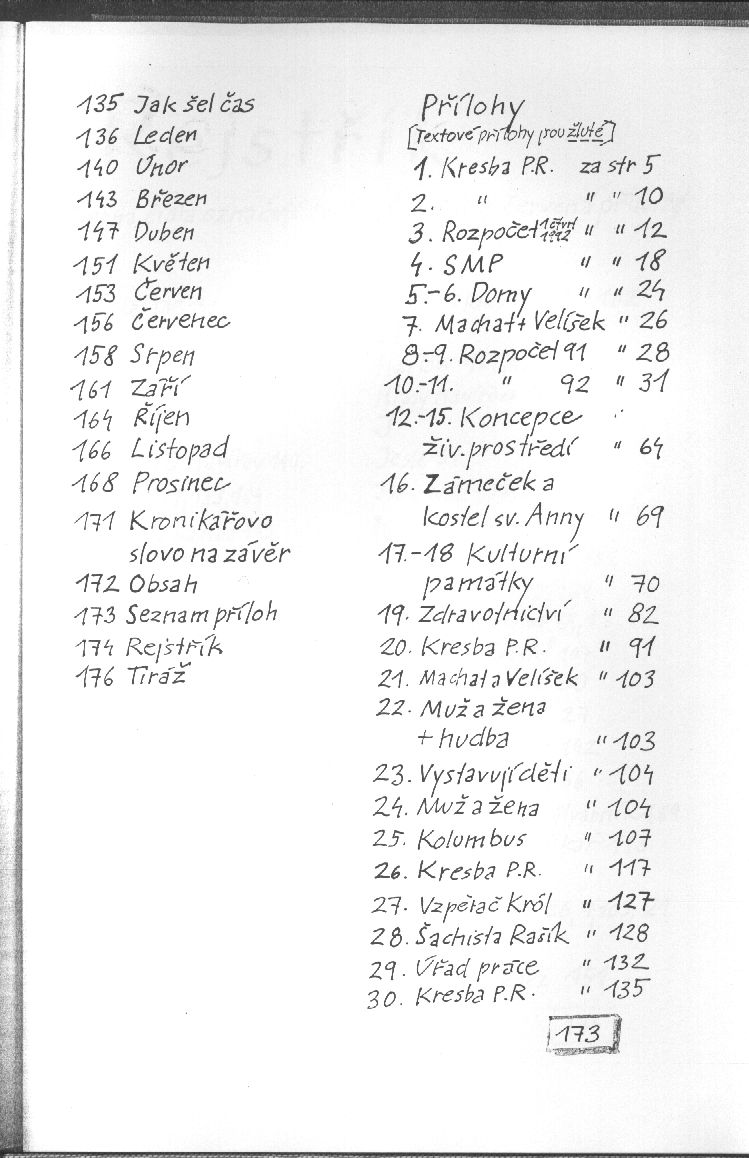 135 Jak šel čas
136 Leden
140 Únor
143 Březen
147 Duben
151 Květen
153 Červen
156 Červenec
158 Srpen
161 Září
164 Říjen
166 Listopad
168 Prosinec
171 Kronikářovo
slovo na závěr
172 Obsah
173 Seznam příloh
174 Rejstřík
176 Tiráž
Přílohy
[Textové přílohy jsou žluté]
1. Kresba P.R. za str 5
2. " " " 10
3. Rozpočet 1.čtvrt 1992 " " 12
4. SMP " " 18
5.-6. Domy " " 24
7. Machat + Velíšek " 26
8.-9. Rozpočet 91 " 28
10.-11. " 92 " 31
12.-15. Koncepce
živ. prostředí " 64
16. Zámeček a
kostel sv. Anny " 69
17.-18 Kulturní
památky " 70
19. Zdravotnictví " 82
20. Kresba P.R. " 91
21. Machat a Velíšek " 103
22. Muž a žena
+ hudba " 103
23. Vystavující děti " 104
24. Muž a žena " 104
25. Kolumbus " 107
26. Kresba P.R. " 117
27. Vzpěrač Król " 127
28. Šachista Rašík " 128
29. Úřad práce " 132
30. Kresba P.R. " 135
173